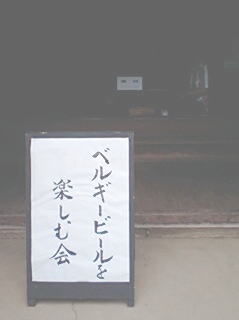 ベルギービールを
楽しむ会